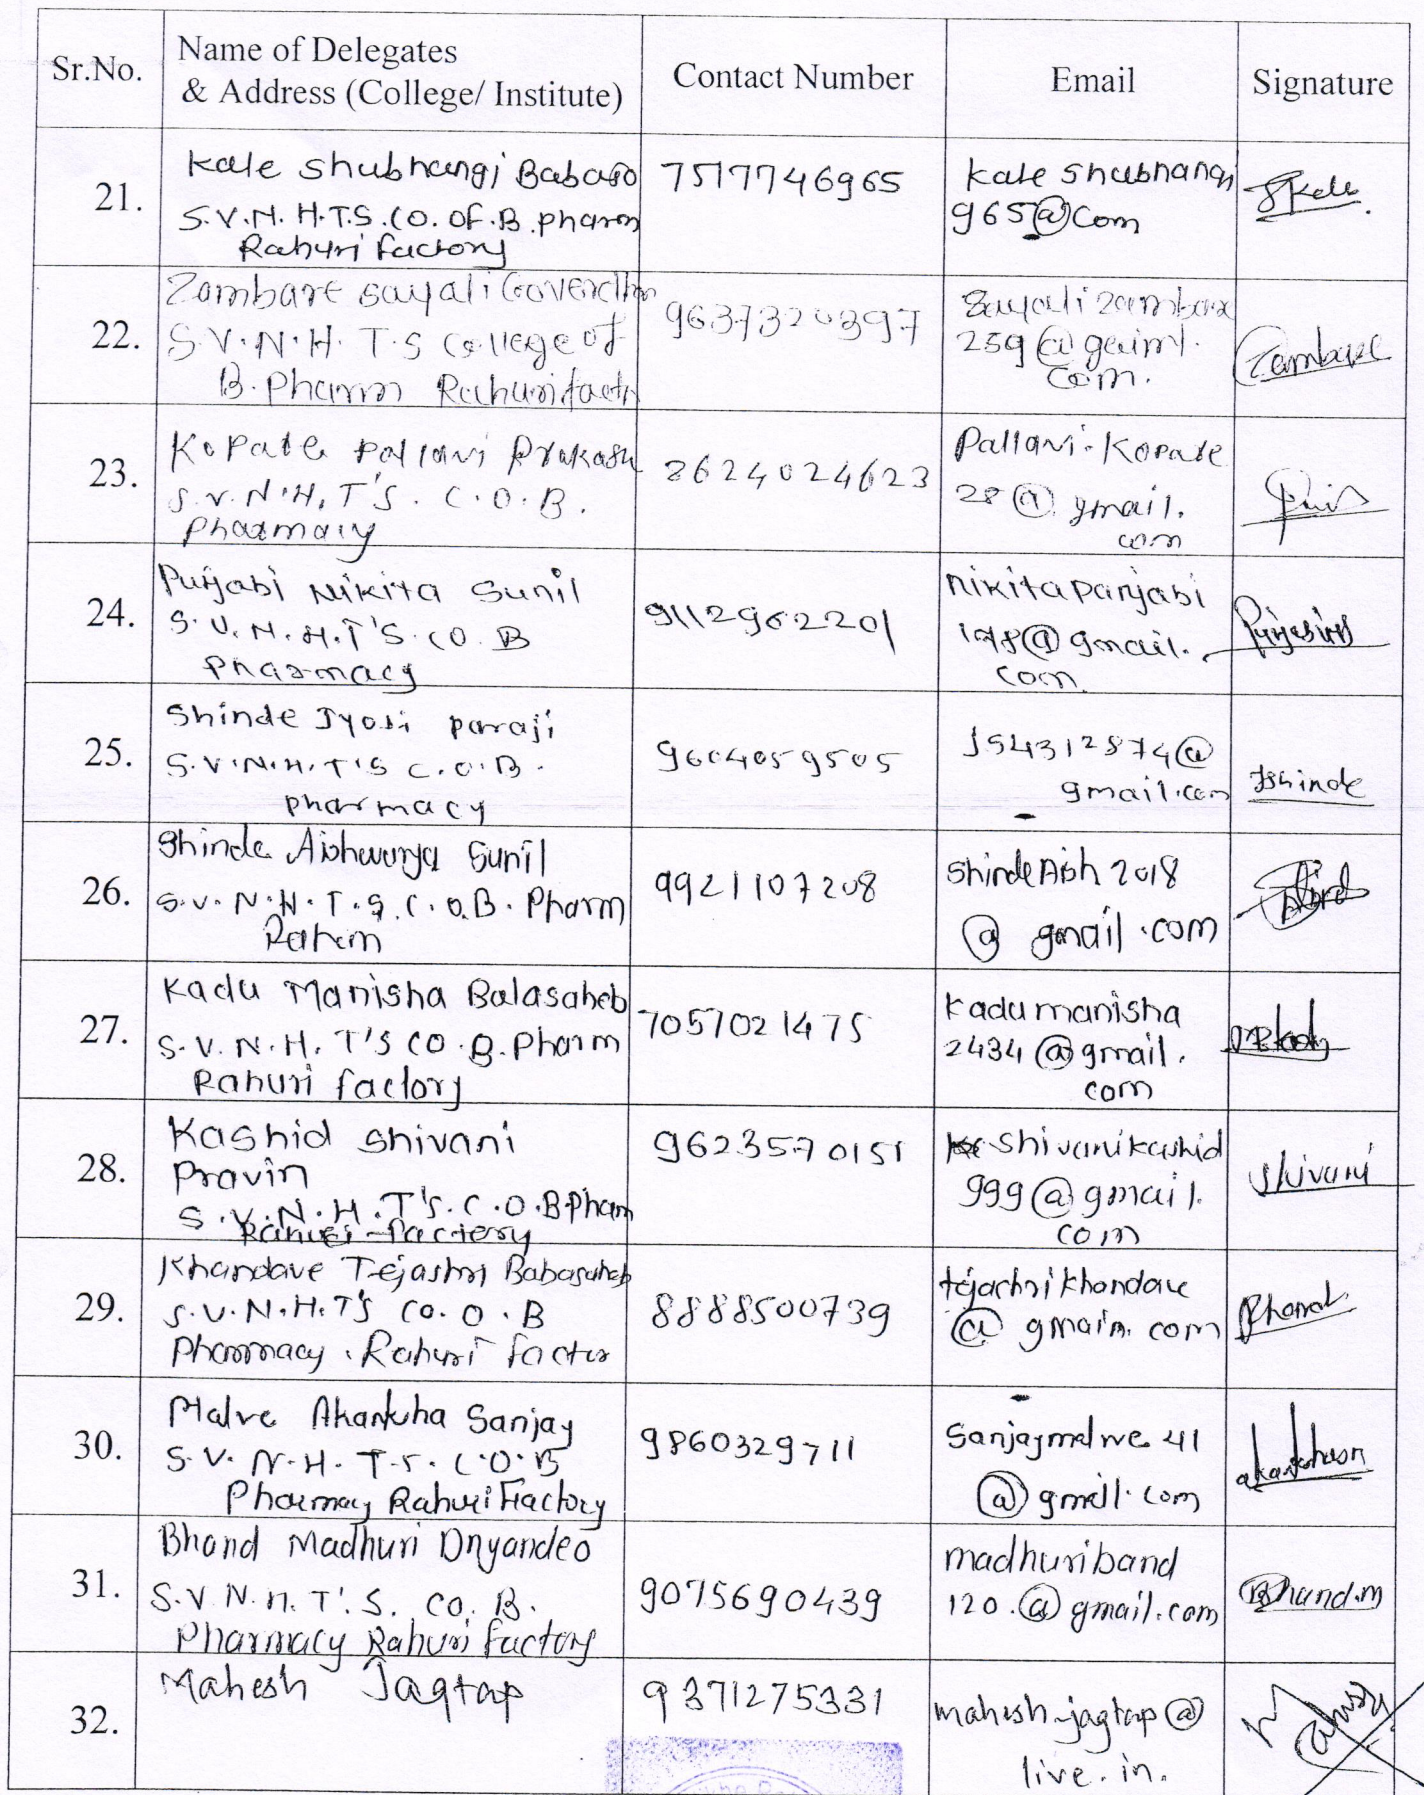 Sr.No.
Name of Delegates
& Address (College/ Institute)
Contact Number
Email
Signature
21.
Kale Shubhangi Babaso
S.V.N.H.T.S. CO. OF. B. pharm
Rahuri factory
7517746965
Kale shubhangi
965@Com
SKale.
22.
Zambare sayali Goverdhn
S.V.N.H.T.S College of
B. Pharm Rahuri fact
9637320397
Sayalizambare
259@gaiml.
com.
Zambare
23.
Kopate Pallavi Prakash
S.V.N.H.T'S. C.O.B.
Pharmacy
8624024623
Pallavi.Kopate
28@gmail.
com
24.
Punjabi Nikita Sunil
S.V.N.H.T'S.CO.B
Pharmacy
9112962201
nikitapanjabi
198@gmail.
com.
25.
Shinde Jyoti paraji
S.V.N.H.T'S C.O.B.
pharmacy
9604059505
J54312874@
gmail.com
Jshinde
26.
Shinde Aishwarya Sunil
S.V.N.H.T.S.C.O.B. Pharm
Rahuri
9921107208
ShindeAish 2018
@ gmail.com
27.
Kadu Manisha Balasaheb
S.V.N.H.T'S CO.B.Pharm
Rahuri factory
7057021475
Kadumanisha
2434@gmail.
com
28.
Kashid Shivani
Pravin
S.V.N.H.T'S.C.O.B.Pharm
Rahuri-factory
9623570151
shivanikashid
999@gmail.
com
Shivani
29.
Khandave Tejashri Babasaheb
S.V.N.H.T'S CO.O.B
Pharmacy. Rahuri factor
8888500739
tejachrikhandave
@ gmain. com
30.
Malve Akanksha Sanjay
S.V.N.H.T.S. C.O.B
Pharmacy Rahuri Factory
9860329711
Sanjaymalve 41
@gmail.com
31.
Bhand Madhuri Dnyandeo
S.V.N.H.T'.S. CO. B.
Pharmacy Rahuri factory
9075690439
madhuriband
120.@gmail.com
Bhand.m
32.
Mahesh Jagtap
9371275331
mahesh-jagtap@
live.in.